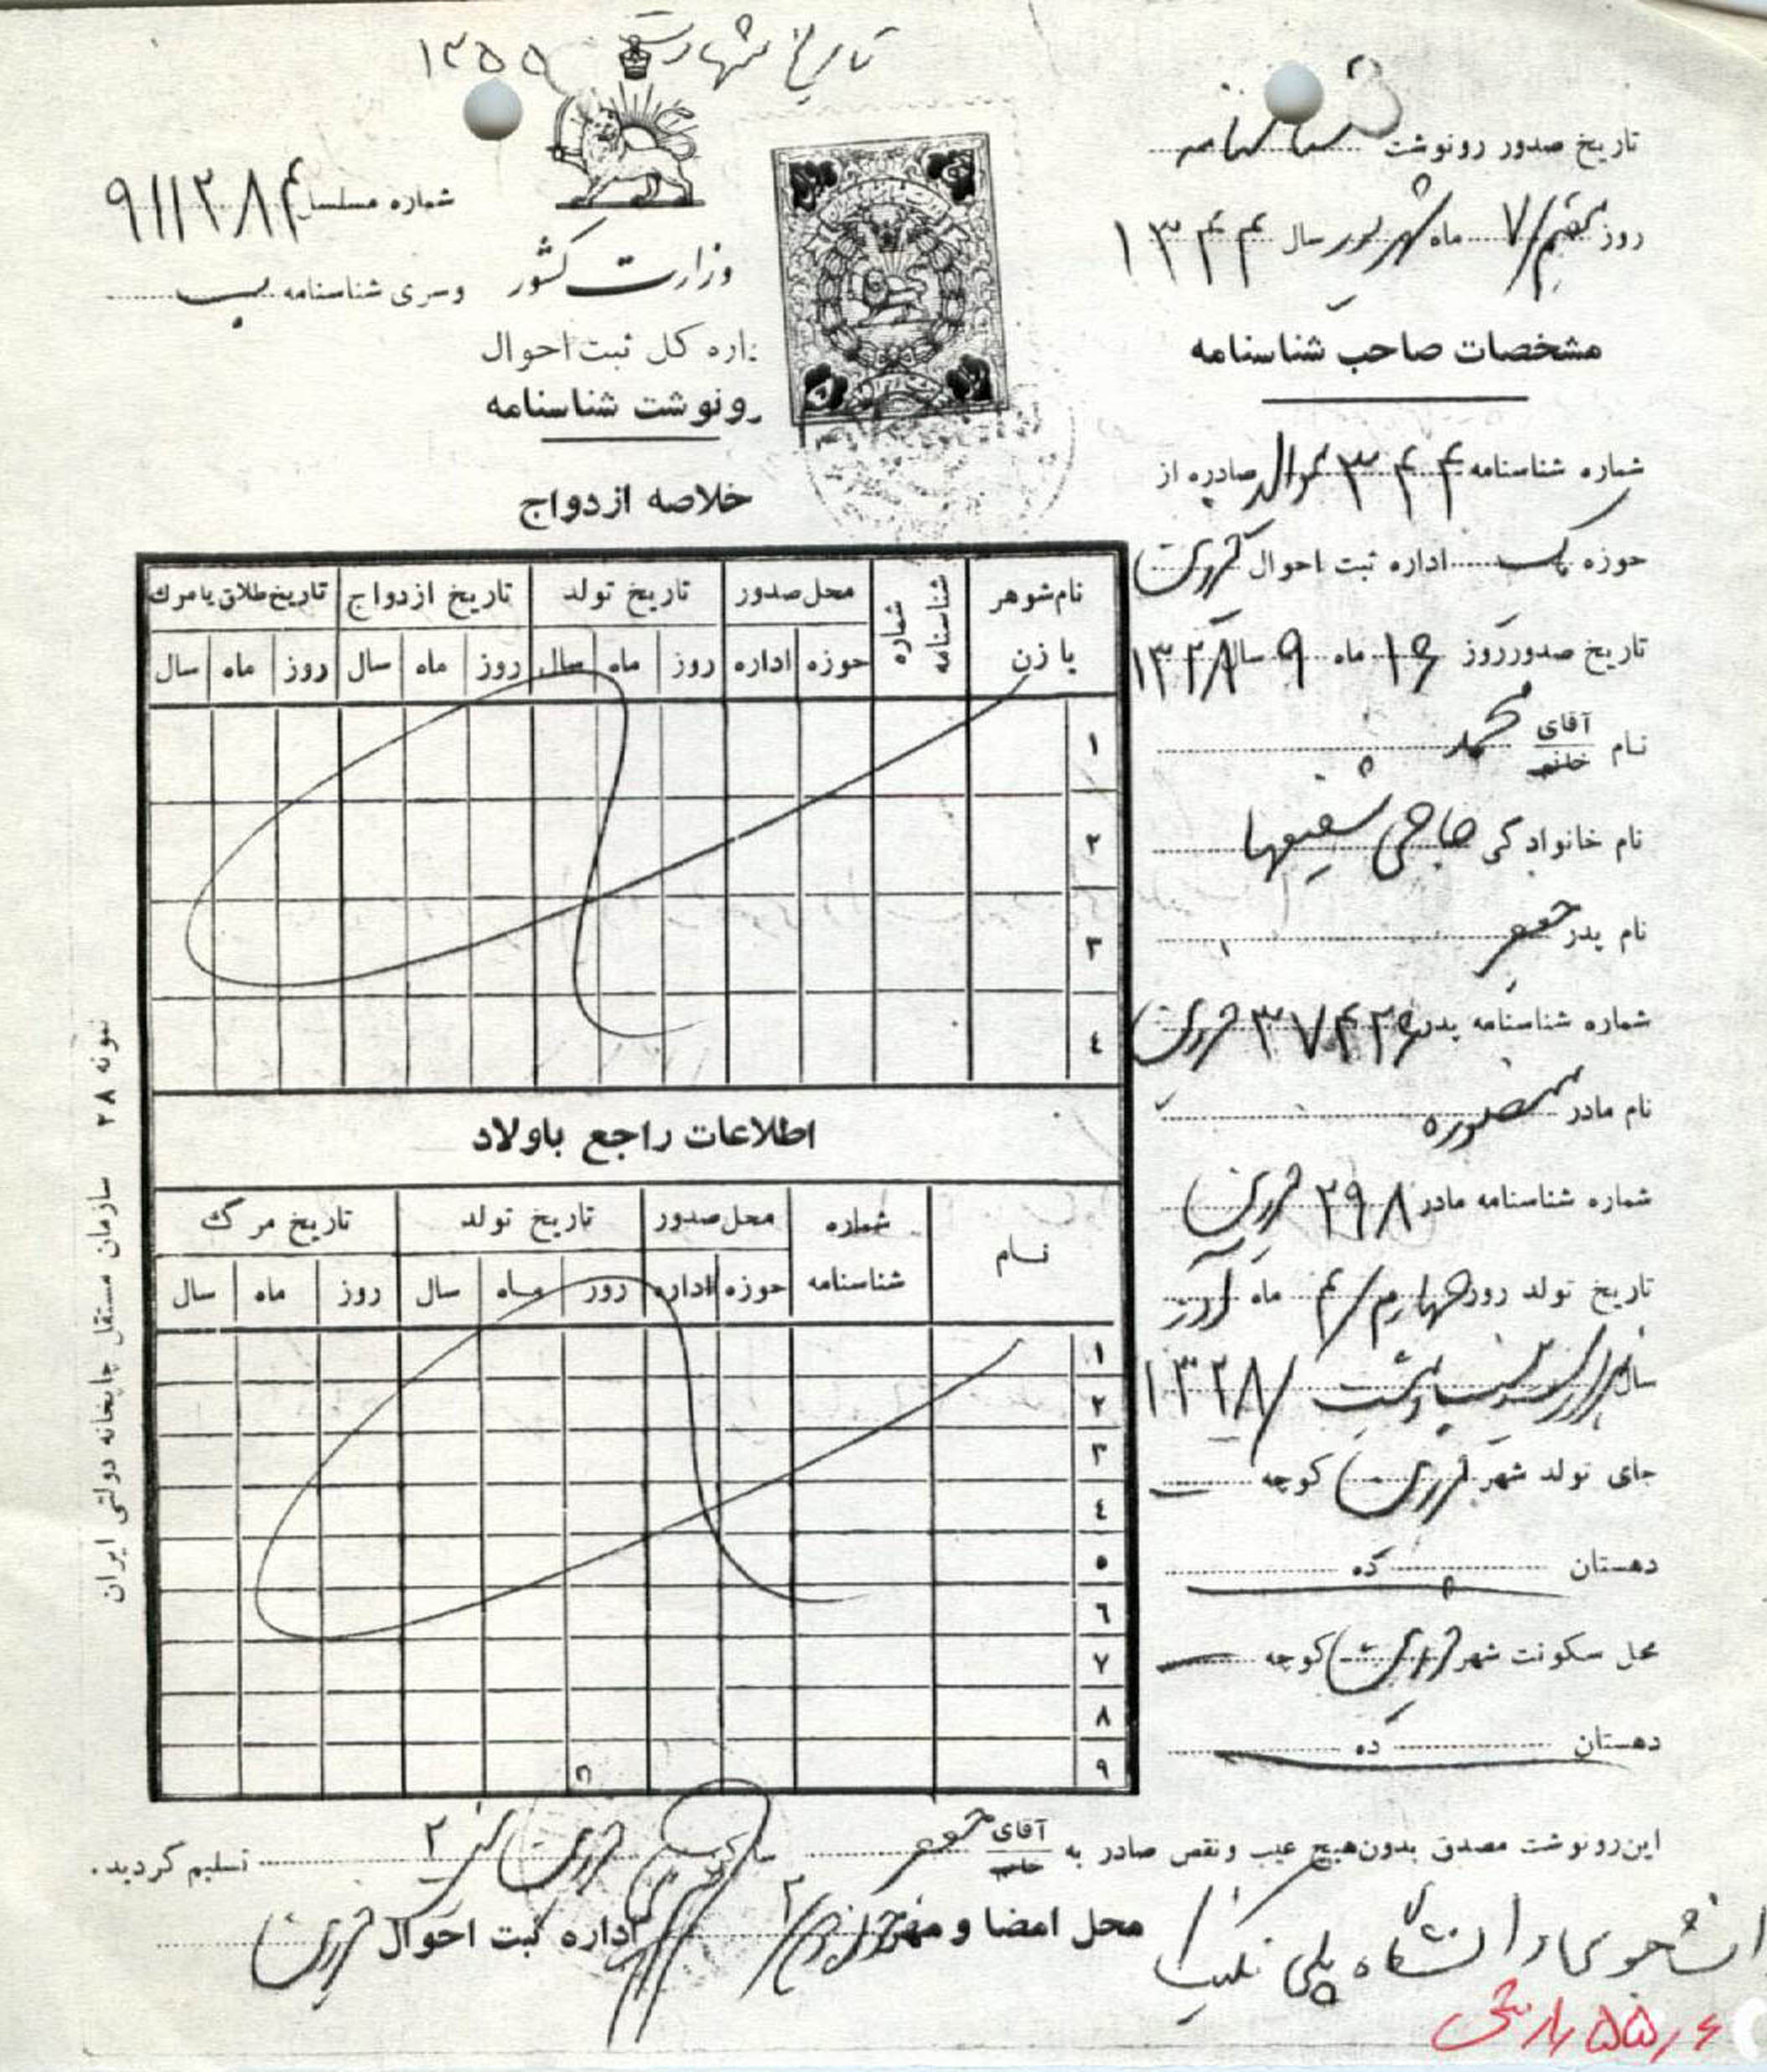 تاریخ شهادت ۱۳۵۵
شناسنامه
تاریخ صدور رونوشت
روز هفتم / ۷ ماه شهریور سال ۱۳۴۴
مشخصات صاحب شناسنامه
شماره شناسنامه ۳۴۴ صادره از
حوزه یک اداره ثبت احوال قزوین
تاریخ صدور روز ۱۶ ماه ۹ سال ۱۳۲۸
نام آقای خانم محمد
نام خانوادگی حاجی شفیعیها
نام پدر جعفر
شماره شناسنامه پدر ۳۷۴۲۶ قزوین
نام مادر منصوره
شماره شناسنامه مادر ۲۹۸ قزوین
تاریخ تولد روز چهارم / ۴ ماه آذر
سال هزار و سیصد و بیست و هشت / ۱۳۲۸
جای تولد شهر قزوین کوچه
دهستان ده
محل سکونت شهر قزوین کوچه
دهستان ده
شماره مسلسل ۹۱۱۲۸۴
وسری شناسنامه ب
وزارت کشور
اره کل ثبت احوال
رونوشت شناسنامه
خلاصه ازدواج
نام شوهر یا زن
شماره شناسنامه
محل صدور
تاریخ تولد
تاریخ ازدواج
تاریخ طلاق یا مرگ
حوزه اداره روز ماه سال روز ماه سال روز ماه سال
۱
۲
۳
٤
اطلاعات راجع باولاد
نام
شماره شناسنامه
محل صدور
تاریخ تولد
تاریخ مرگ
حوزه اداره روز ماه سال روز ماه سال
۱
۲
۳
٤
۵
٦
۷
۸
۹
نمونه ۲۸ سازمان مستقل چاپخانه دولتی ایران
این رونوشت مصدق بدون هیچ عیب و نقص صادر به آقای خانم جعفر ساکن قزوین تسلیم گردید.
محل امضا و مهر اداره ثبت احوال قزوین
دانشجوی دانشگاه پلی تکنیک